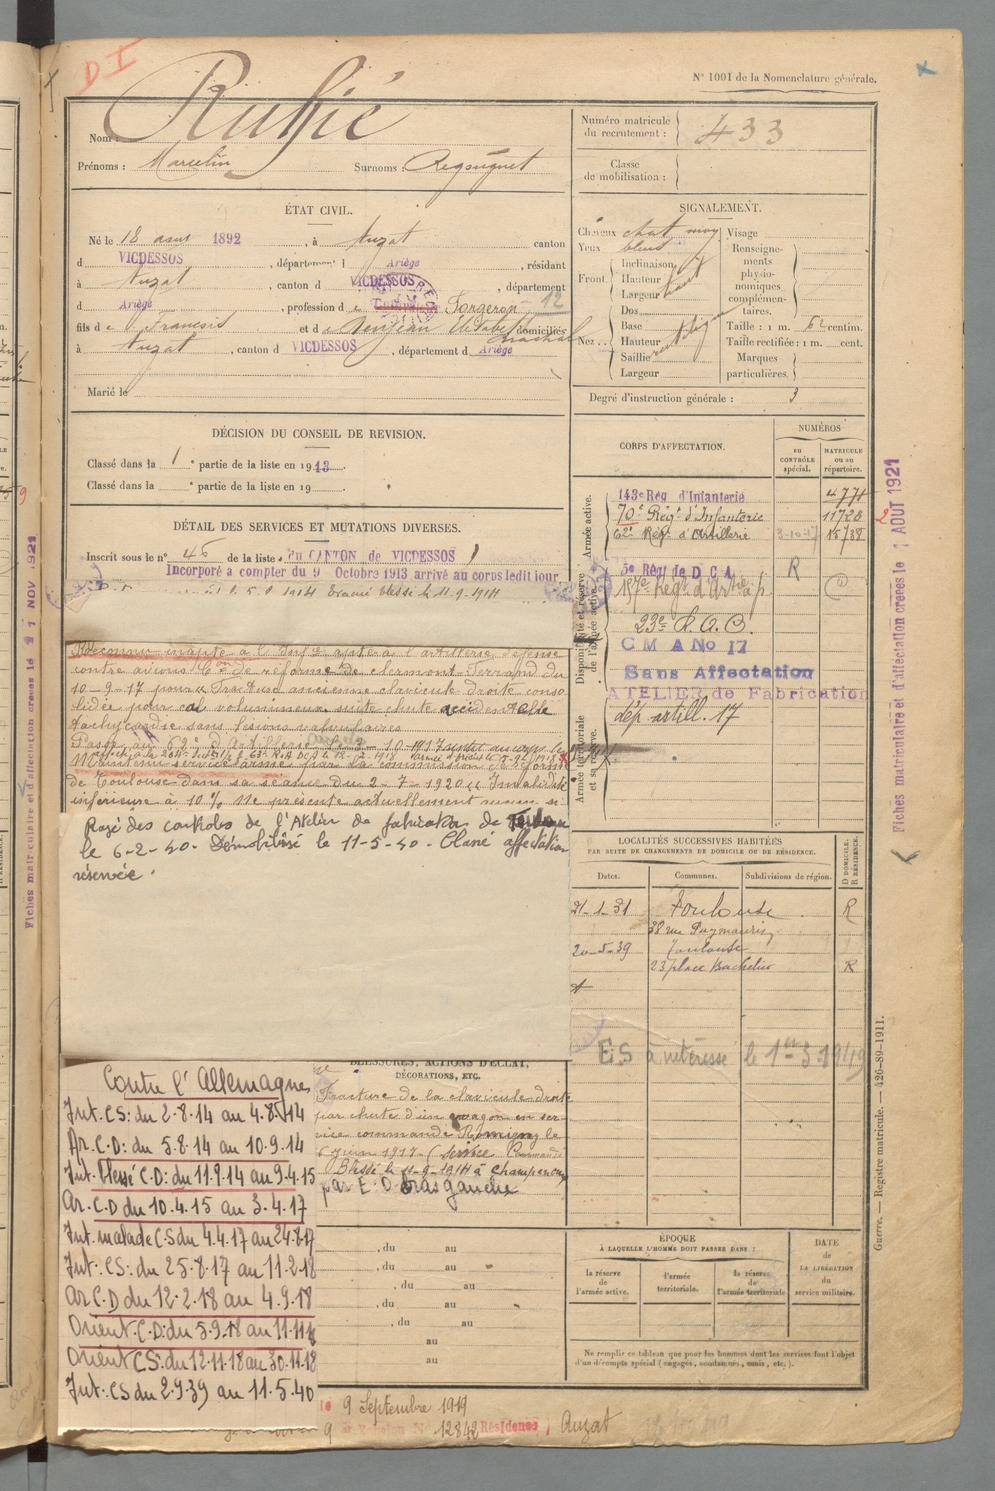 D I
N° 1001 de la Nomenclature générale.
Nom : Ruffié
Prénoms : Marcelin Surnoms :
Numéro matricule du recrutement : 433
Classe de mobilisation :
ÉTAT CIVIL.
Né le 18 août 1892, à Auzat canton
d VICDESSOS, département d Ariège, résidant
à Auzat, canton d VICDESSOS, département
d Ariège, profession de Forgeron - 12
fils de Francois et de domiciliés
à Auzat, canton d VICDESSOS, département d Ariège
Marié le
SIGNALEMENT.
Cheveux chat. moy Visage
Yeux bleus Renseignements physionomiques complémentaires.
Front Inclinaison
Hauteur haut
Largeur
Nez Dos rectiligne
Base
Hauteur
Saillie
Largeur
Taille : 1 m. 62 centim.
Taille rectifiée : 1 m. cent.
Marques particulières.
Degré d'instruction générale : 3
DÉCISION DU CONSEIL DE REVISION.
Classé dans la 1e partie de la liste en 1913
Classé dans la e partie de la liste en 19
DÉTAIL DES SERVICES ET MUTATIONS DIVERSES.
Inscrit sous le n° 46 de la liste du CANTON de VICDESSOS
Incorporé à compter du 9 Octobre 1913 arrivé au corps ledit jour
Evacué blessé le 11-9-1914
Reconnu inapte à l'Inf.ie apte à l'artillerie défense
contre avions Con de réforme de Clermont-Ferrand du
10-9-17 pour « Fracture ancienne clavicule droite conso
lidée pour cal volumineux suite chute accidentelle
tachycardie sans lésions valvulaires
Passé au 62e d'Artillerie
Maintenu service armé par la commission de réforme
de Toulouse dans sa séance du 2-7-1920 « Invalidité
inférieure à 10 % ne présente actuellement
Rayé des contrôles de l'Atelier de fabrication de
le 6-2-40. Démobilisé le 11-5-40. Classé affectation
réservée.
CORPS D'AFFECTATION.
NUMÉROS
AU CONTRÔLE SPÉCIAL.
MATRICULE OU AU RÉPERTOIRE.
Armée active.
143e Rég d'Infanterie 4771
70e Régt d'Infanterie 11728
62e Régt d'Artillerie 3-10-17 15738
Disponibilité et réserve de l'armée active.
5e Régt de D C A R
157e Régt d'Art. à p.
23e S.A.O.
C M A No 17
Sans Affectation
ATELIER de Fabrication
Armée territoriale et sa réserve.
dép artill. 17
Fiches matriculaire et d'affectation créées le 1 AOUT 1921
Fiches matriculaire et d'affectation créées le 21 NOV 1921
LOCALITÉS SUCCESSIVES HABITÉES
PAR SUITE DE CHANGEMENTS DE DOMICILE OU DE RÉSIDENCE.
Dates. Communes. Subdivisions de région. D DOMICILE. R RÉSIDENCE.
21-1-31 Toulouse R
38 rue Puymaurin
20-5-39 Toulouse
23 place Bachelier R
ES à intéressé le 1er 3 1949
BLESSURES, ACTIONS D'ÉCLAT,
DÉCORATIONS, ETC.
Fracture de la clavicule droite
par chute d'un wagon en ser-
vice commandé Romigny le
6 juin 1917 (service Commandé
Blessé le 11-9-1914 à Champenoux
par E. O bras gauche
Contre l'Allemagne
Int. CS: du 2-8-14 au 4.8.14
Ar. C.D: du 5.8.14 au 10.9.14
Int. Blessé C.D: du 11.9.14 au 9.4.15
Ar. C.D du 10.4.15 au 3.4.17
Int. malade C.S du 4.4.17 au 24.8.17
Int. CS: du 25.8.17 au 11.2.18
Ar C.D du 12.2.18 au 4.9.18
Orient C.D: du 5.9.18 au 11.11.18
Orient CS: du 12.11.18 au 30.11.18
Int. CS du 2.9.39 au 11.5.40
, du au
, du au
, du au
, du au
, du au
au
au
ÉPOQUE
À LAQUELLE L'HOMME DOIT PASSER DANS :
la réserve de l'armée active.
l'armée territoriale.
la réserve de l'armée territoriale
DATE de LA LIBÉRATION du service militaire.
Ne remplir ce tableau que pour les hommes dont les services font l'objet
d'un décompte spécial (engagés, condamnés, omis, etc.).
le 9 Septembre 1919
9 Echelon N° 12842 Résidence, Auzat
Guerre. — Registre matricule. — 426-89-1911.